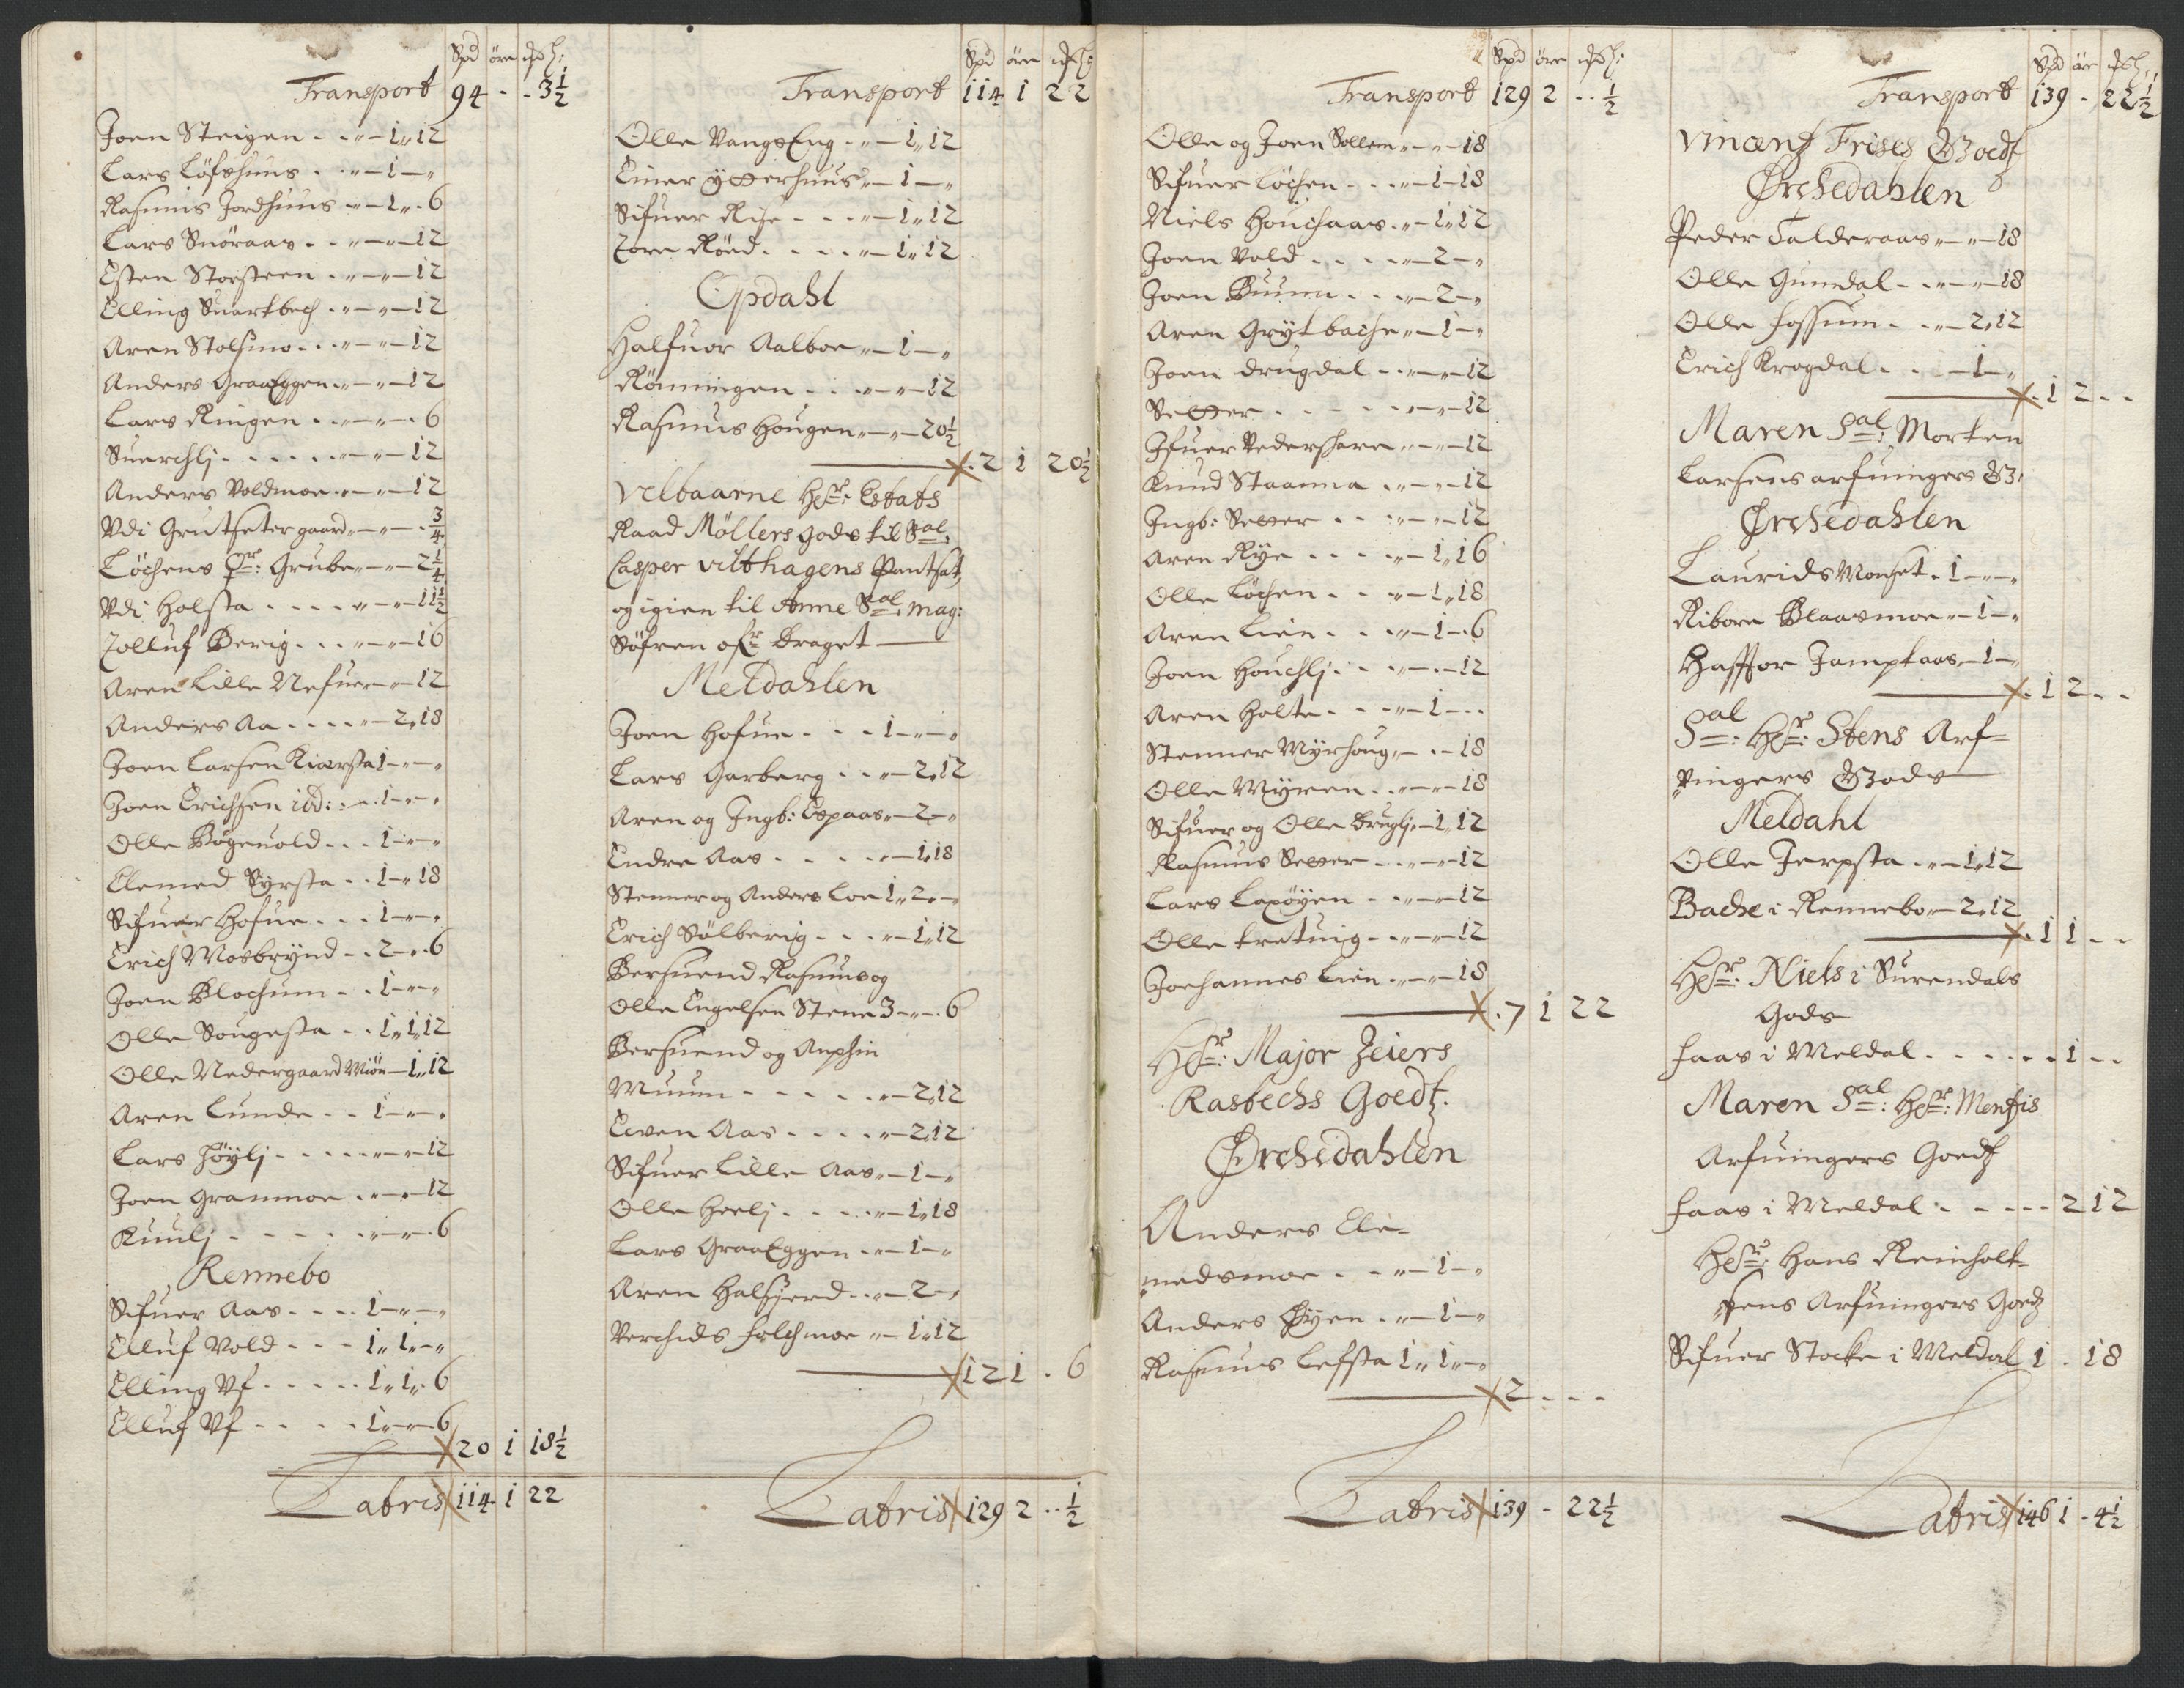 Spd öre
Transport 94 - - 3½
Joen Steigen - - „ - 1 „ 12
Lars Löfshuus - - „ - 1 - „
Rasmus Jordhuus „ - 1 „ - 6
Lars Snöraas - - „ - „ - 12
Esten Storsteen - „ - „ - 12
Elling Suartbech - „ - „ - 12
Aren Stolsmo - - „ - „ - 12
Anders GraaEggen - „ - „ - 12
Lars Ringen - - „ - „ - 6
Suerchlj - - - - - „ - „ - 12
Anders Voldmoe - „ - „ - 12
Vdi Grutsetergaard „ - „ - ¾
Löchens Qr: Grube „ - „ - 2¼
Vdi Holsta - - - - „ - „ - 11½
Tolluf Berig - - - „ - „ - 16
Aren Lille Nefuer „ - „ 12
Anders Aa - - - - „ - 2 „ 18
Joen Larsen Kiærsta 1 - „ - „
Joen Erichsen ibd: - 1 - „ - „
Olle Bögeuold - - - 1 - „ - „
Clemed Syrsta - - 1 - „ 18
Sifuer Hofue - - - 1 - „ - „
Erich Mosbrynd - - 2 - „ - 6
Joen Blochum - - 1 - „ - „
Olle Sougesta - - 1 „ 1 „ 12
Olle Nedergaard Miön - 1 „ 12
Aren Lunde - - - 1 - „ - „
Lars Höylj - - - - - „ - „ - 12
Joen Grammoe - - „ - „ 12
Kuulj - - - - - „ - „ - 6
Rennebo
Sifuer Aas - - - - 1 - „ - „
Elluf Vold - - - 1 „ 1 „ - „
Elling Vf - - - - - 1 „ 1 „ 6
Elluf Vf - - - - 1 „ - „ - 6
20 1 18½
Latris 114 1 22
Spd öre
Transport 114 1 22
Olle VangsEng - „ - 1 „ 12
Einer ytterhuus „ - 1 - „
Sifuer Rise - - - „ - 1 „ 12
Tore Röed - - - - „ - 1 „ 12
Opdahl
Halfuor Aalboe „ - 1 - „
Rönningen - - - „ - „ - 12
Rasmus Hougen „ - „ - 20½
2 1 20½
Velbaarne Hr: Estats
Raad Möllers Gods til Sal:
Casper Vilthagens Pantsat,
og igien til Anne Sal: Mag:
Söfren Braget
Meldahlen
Joen Hofue - - - 1 - „ - „
Lars Garberg - - „ - 2 „ 12
Aren og Ingb: Espaas „ - 2 - „
Endre Aas - - - - „ - 1 „ 18
Stenner og Anders Loe 1 „ 2 „ - „
Erich Sölberig - - - „ - 1 „ 12
Bersuend Rasmus og
Olle Engelsen Stene 3 - „ - 6
Bersuend og Anphin
Muum - - - - - „ - 2 „ 12
Even Aas - - - - „ - 2 „ 12
Sifuer Lille Aas „ - 1 - „
Olle Heelj - - - - „ - 1 „ 18
Lars GraaEggen - „ - 1 - „
Aren Halsierd - - „ - 2 - „
Verchids Folchmoe „ - 1 „ 12
12 1 - 6
Latris 129 2 - - ½
Spd öre
Transport 129 2 - - ½
Olle og Joen Sollem „ - „ - 18
Sifuer Löchen - - - „ - 1 - 18
Niels Houchaas - „ - 1 „ 12
Joen Vold - - - - „ - 2 - „
Joen Buum - - - „ - 2 - „
Aren Grytbache „ - 1 - „
Joen Drugdal - - „ - „ - 12
Setter - - - - - „ - „ - 12
Ifuer Vedershare „ - „ - 12
Knud Staamna - „ - „ - 12
Ingb: Setter - - „ - „ - 12
Aren Rye - - - - „ - 1 „ 16
Olle Löchen - - „ - 1 „ 18
Aren Lien - - - „ - 1 - 6
Joen Houchlj - - „ - „ - 12
Aren Holte - - - „ - 1 - -
Stenner Myrhoug „ - „ - 18
Olle Myren - - „ - „ - 18
Sifuer og Olle Druglj „ - 1 „ 12
Rasmus Setter - - „ - „ - 12
Lars Laxöyen - - „ - „ - 12
Olle Kretuig - - „ - „ - 12
Joehannes Lien - „ - „ - 18
7 1 22
Hr: Major Zeiers
Rasbechs Goedtz.
Ørchedahlen
Anders Cle-
medsmoe - - „ - 1 - „
Anders Øyen - „ - 1 - „
Rasmus Lefsta 1 „ 1 „ - „
2 - - -
Latris 139 - 22½
Spd öre
Transport 139 - 22½
Vincentz Frises Goedtz
Ørchedahlen
Peder Talderaas „ - „ - 18
Olle Gumdal - - „ - „ - 18
Olle Fossum - - „ - 2 „ 12
Erich Krogdal - - - 1 - „
1 2 - -
Maren Sal: Morten
Larsens arfuingers G:
Ørchedahlen
Laurids Monset - 1 - „ - „
Ribore Blaasmoe „ - 1 - „
Haffor Jamptaas - 1 - „
1 2 - -
Sal: Hr: Stens Arf-
vingers Gods
Meldahl
Olle Jerpsta - - „ - 1 „ 12
Bache i Rennebo „ - 2 „ 12
1 1 - -
Hr: Niels i Surendals
Gods
Faas i Meldal - - - - - - 1 - -
Maren Sal: Hr: Mentzis
Arfuingers Goedtz
Faas i Meldal - - - - - 2 12
Hr: Hans Reinholt-
sens Arfuingers Goedtz
Sifuer Stocke i Meldal 1 - 18
Latris 146 1 - 4½